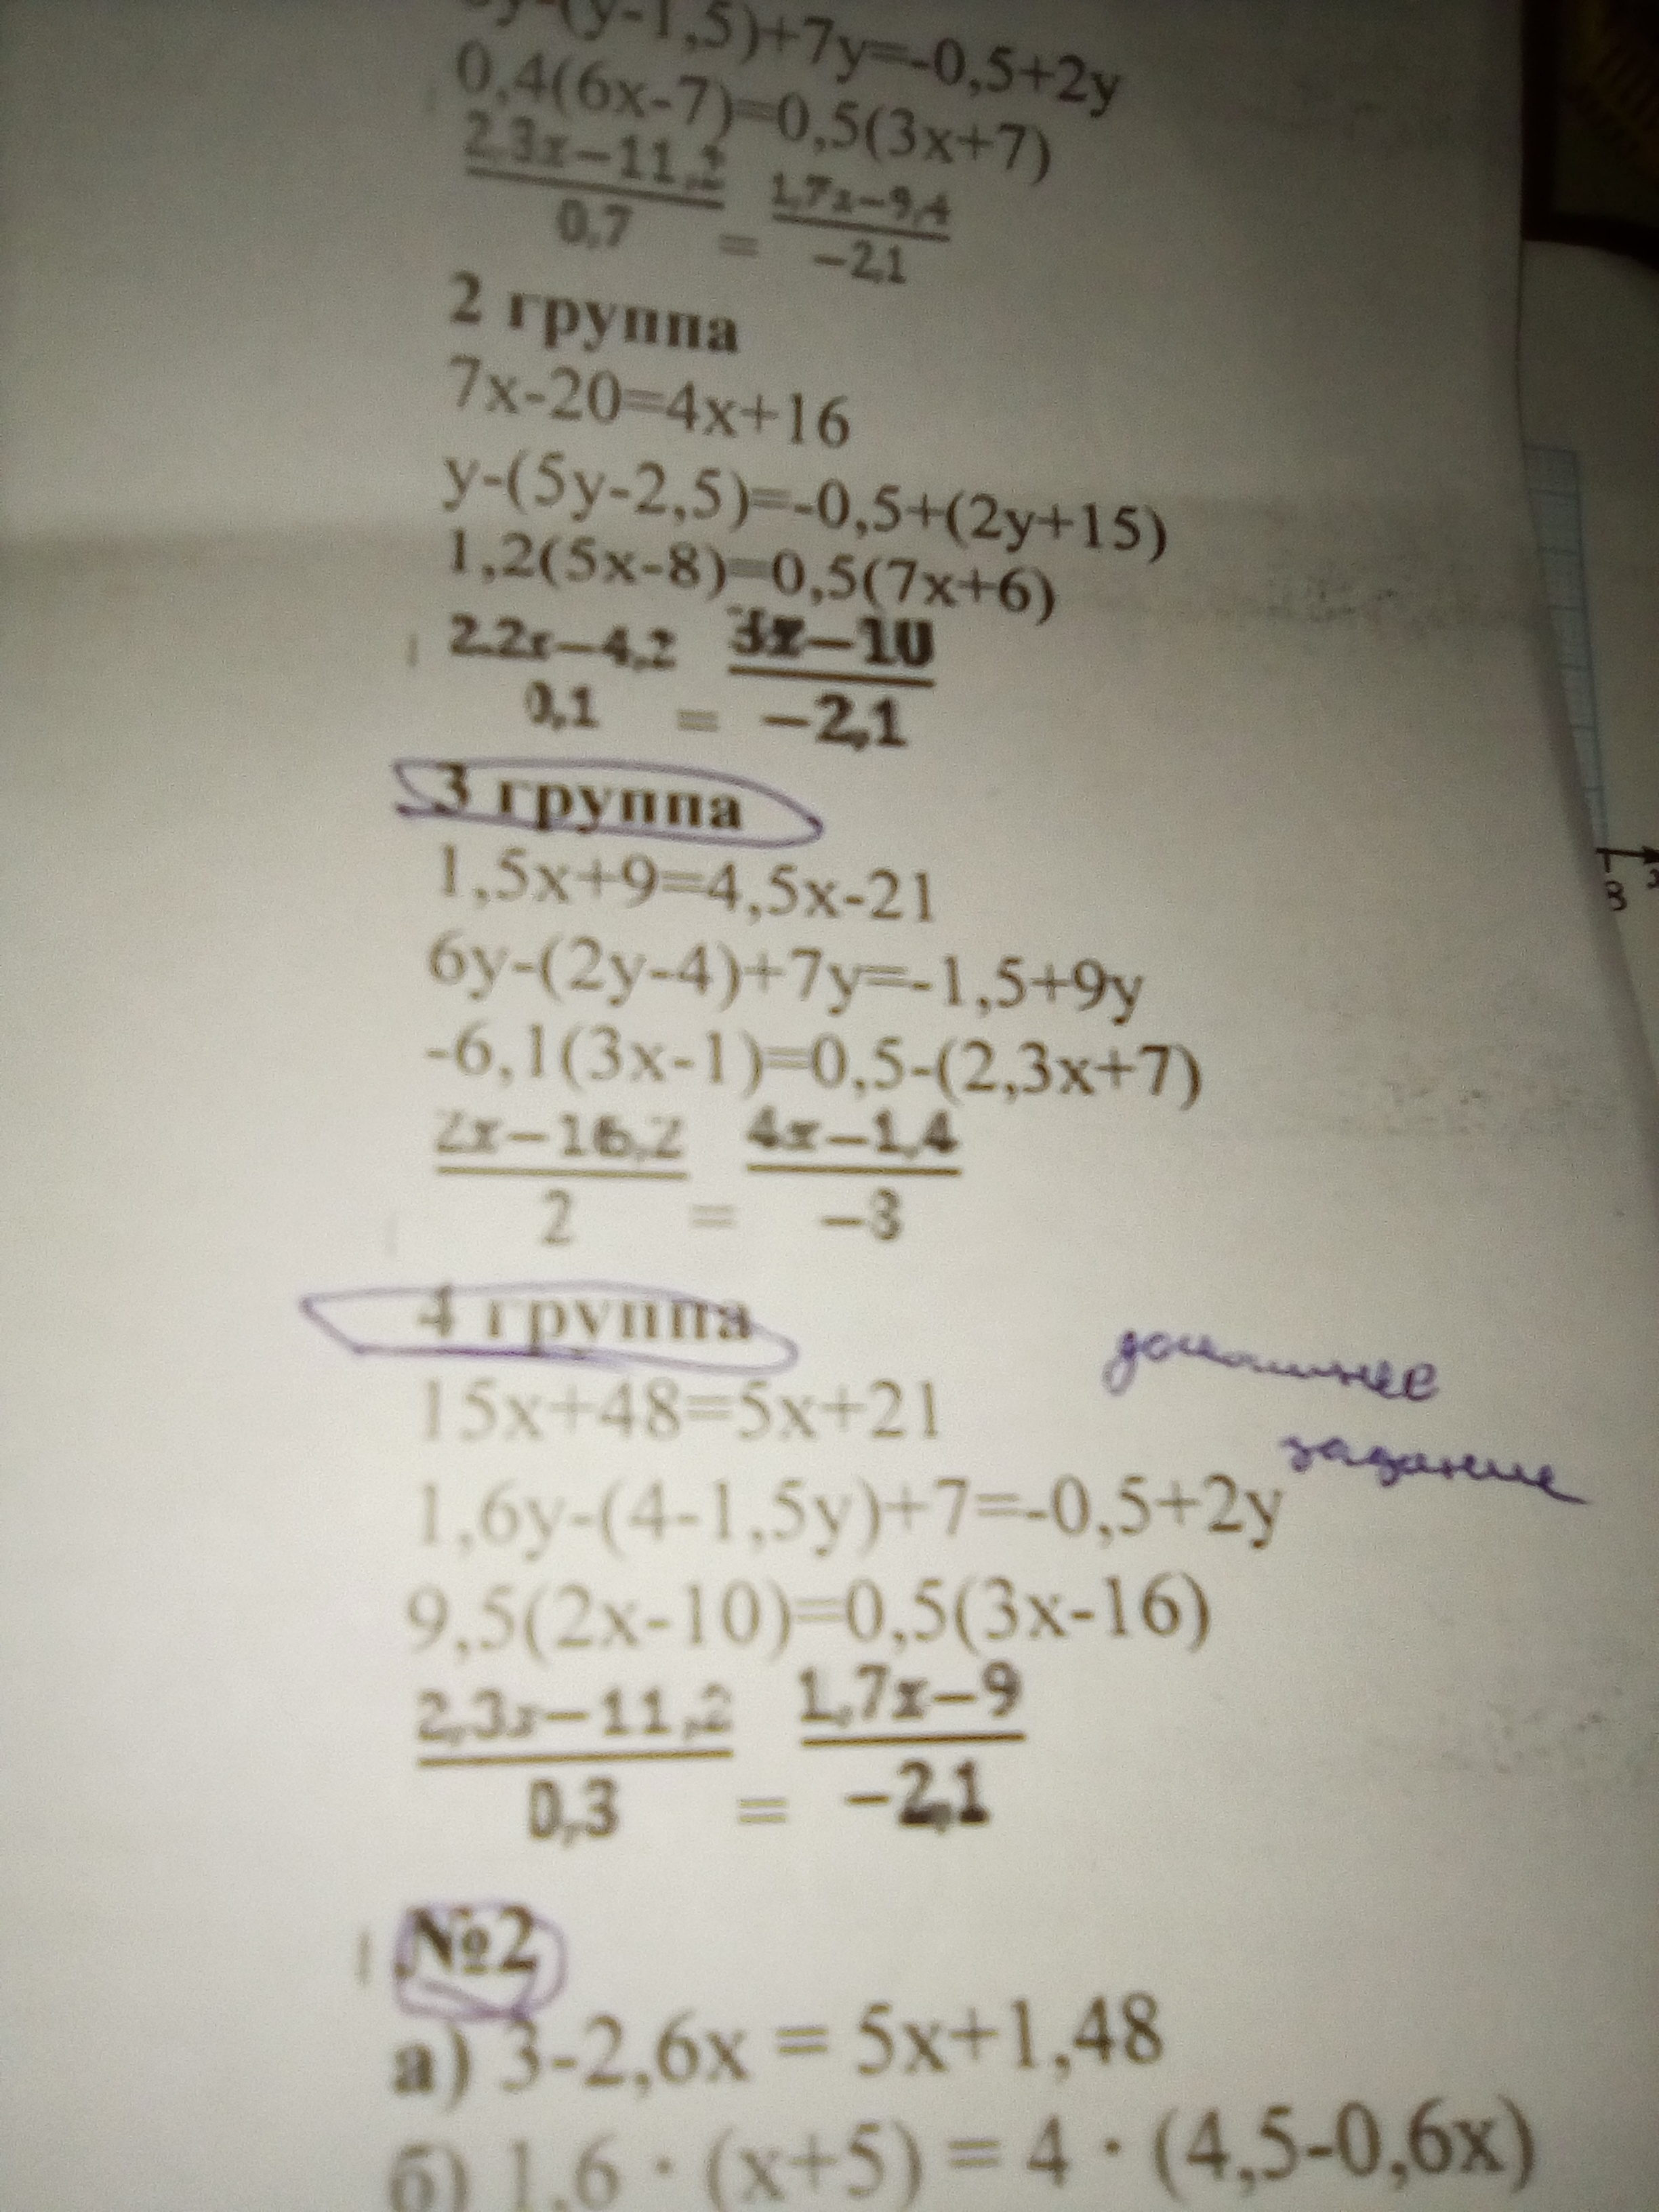 y-(y-1,5)+7y=-0,5+2y
0,4(6x-7)=0,5(3x+7)
2,3x−11,2 1,7x−9,4
0,7 = −2,1
2 группа
7x-20=4x+16
y-(5y-2,5)=-0,5+(2y+15)
1,2(5x-8)=0,5(7x+6)
2.2x−4,2 3x−10
0,1 = −2,1
3 группа
1,5x+9=4,5x-21
6y-(2y-4)+7y=-1,5+9y
-6,1(3x-1)=0,5-(2,3x+7)
2x−16,2 4x−1,4
2 = −3
4 группа
15x+48=5x+21
домашнее
задание
1,6y-(4-1,5y)+7=-0,5+2y
9,5(2x-10)=0,5(3x-16)
2,3x−11,2 1,7x−9
0,3 = −2,1
№2
а) 3-2,6x = 5x+1,48
б) 1,6 · (x+5) = 4 · (4,5-0,6x)